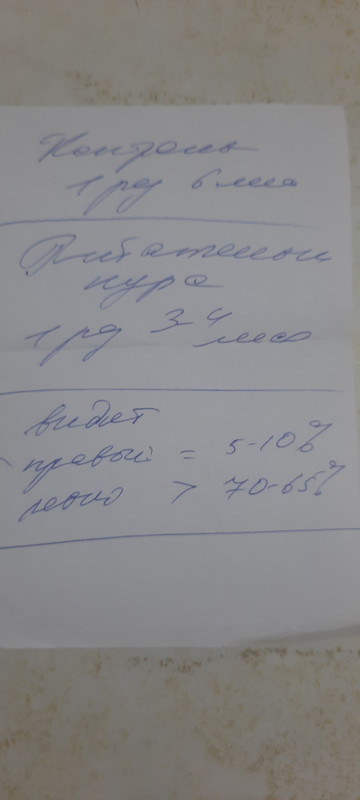 Контроль
1 раз 6 мес
Витаминный
курс
1 раз 3-4 мес
видит
правый = 5-10%
левый > 70-65%